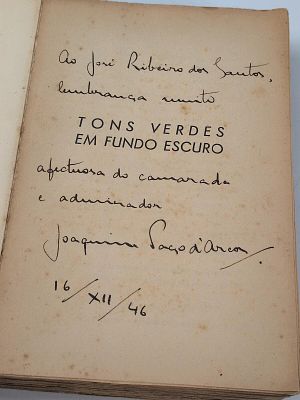 Ao José Ribeiro dos Santos,
lembrança muito
TONS VERDES
EM FUNDO ESCURO
afectuosa do camarada
e admirador
Joaquim Paço d'Arcos
16/XII/46